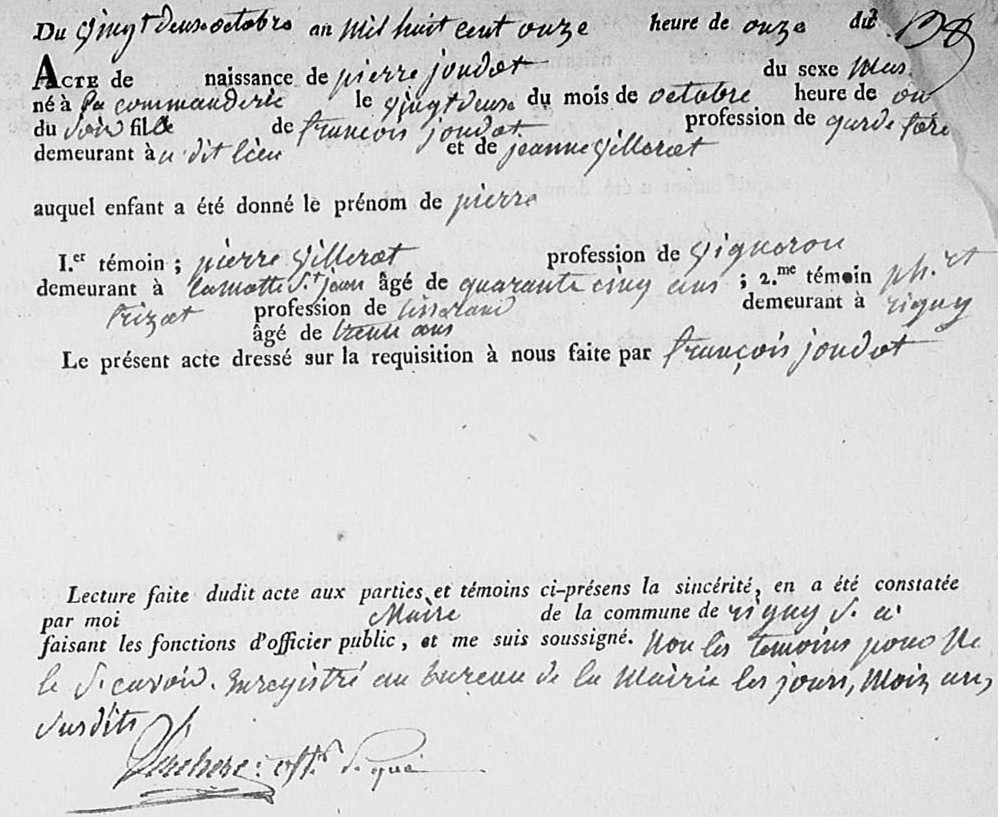 Du vingt deux octobre an mil huit cent onze heure de onze du
ACTE de naissance de pierre joudot du sexe Mas.
né à la commanderie le vingt deux du mois de octobre heure de on
du soir fils de françois joudot profession de garde fore
demeurant à u dit lieu et de jeanne villerot
auquel enfant a été donné le prénom de pierre
I.er témoin ; pierre villerot profession de vigneron
demeurant à lamotte S.t jean âgé de quarante cinq ans ; 2.me témoin ph. et
frizot profession de tisserand demeurant à rigny
âgé de trente ans
Le présent acte dressé sur la requisition à nous faite par françois joudot
Lecture faite dudit acte aux parties et témoins ci-présens la sincérité, en a été constatée
par moi Maire de la commune de rigny S. a
faisant les fonctions d'officier public, et me suis soussigné. Non les temoins pour ne
le Scavoir. Enregistré au bureau de la Mairie les jours, Mois an,
Susdits